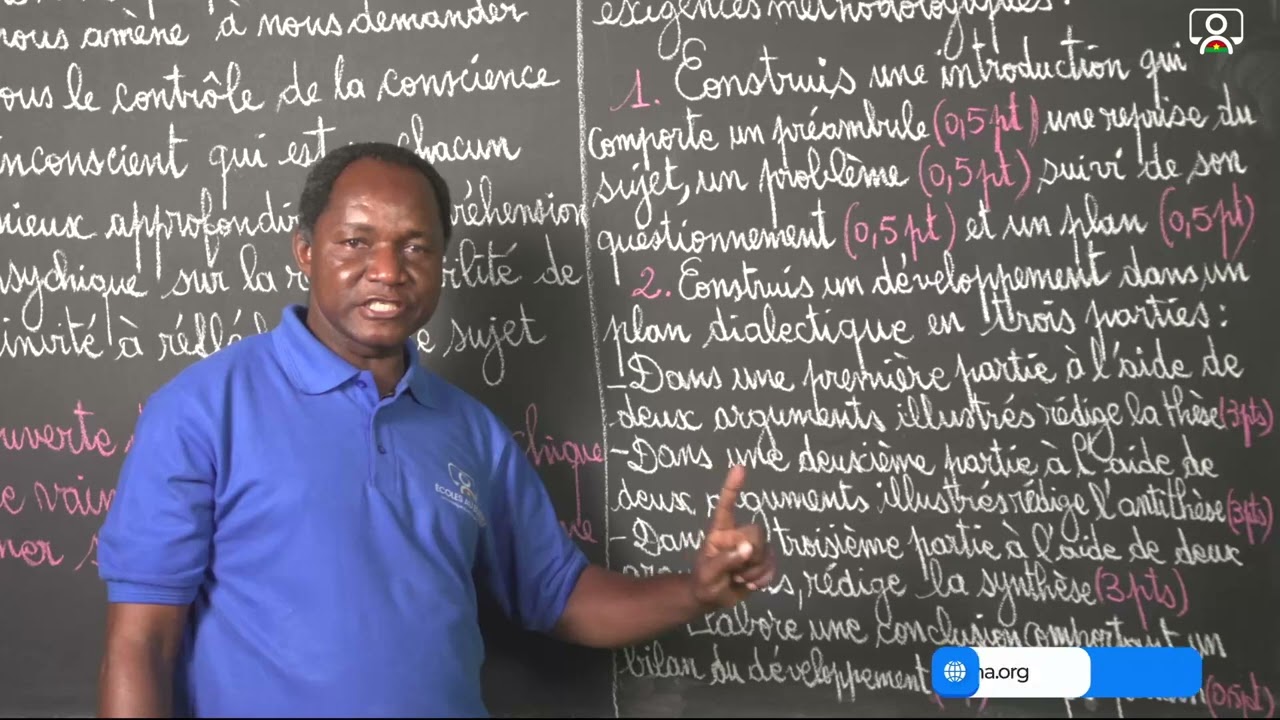 nous amène à nous demander
ous le contrôle de la conscience
inconscient qui est chacun
mieux approfondir préhension
sychique sur la r bilité de
invité à réflé e sujet
ouverte chique
e vain
ner s ne
exigences méthodologiques:
1. Construis une introduction qui
comporte un préambule (0,5pt) une reprise du
sujet, un problème (0,5pt) suivi de son
questionnement (0,5pt) et un plan (0,5pt)
2. Construis un développement dans un
plan dialectique en trois parties:
-Dans une première partie à l'aide de
deux arguments illustrés rédige la thèse (3pts)
-Dans une deuxième partie, à l'aide de
deux arguments illustrés rédige l'antithèse (3pts)
-Dans troisième partie à l'aide de deux
rédige la synthèse (3pts)
Elabore une conclusion comportant un
bilan du développement (0,5pt)
ÉCOLES AU
na.org